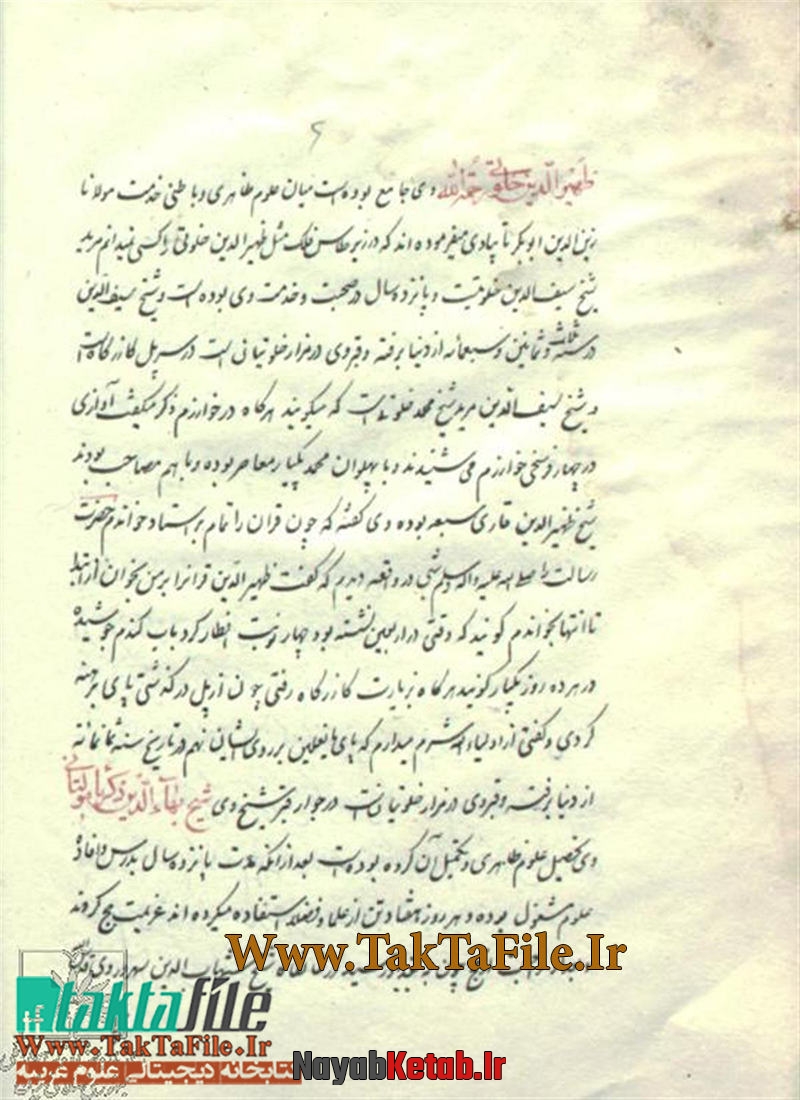 ۶
ظهیرالدین خلوتی رحمه الله وی جامع بوده است میان علوم ظاهری و باطنی خدمت مولانا
زین الدین ابوبکر تایبادی میفرموده اند که در زیر طاس فلک مثل ظهیرالدین خلوتی را کسی نمیدانم مرید
شیخ سیف الدین خلوتیست و پانزده سال در صحبت و خدمت وی بوده است و شیخ سیف الدین
در سنه ثلاث و ثمانین و سبعمائه از دنیا برفته و قبر وی در مزار خلوتیانی است در سر پل کازرکاه است
و شیخ سیف الدین مرید شیخ محمد خلوتی است که میکویند هر کاه در خوارزم ذکر میکفت آوازی
در چهار فرسخی خوارزم می شنیدند و با پهلوان محمد بکیار معاصر بوده و با هم مصاحب بودند
شیخ ظهیرالدین قاری سبعه بوده وی کفته که چون قران را تمام بر استاد خواندم حضرت
رسالت را صلی الله علیه و آله و سلم شبی در واقعه دیدم که کفت ظهیرالدین قرانرا بر من بخوان از ابتدا
تا انتها بخواندم کویند که وقتی در اربعین نشسته بود چهار نوبت افطار کرد باب کندم جوشیده
در هر ده روز یکبار کویند هر کاه بزیارت کازرکاه رفتی چون از پل درکذشتی پای برهنه
کردی و کفتی از اولیاء الله شرم میدارم که پای با نعلین بر روی ایشان نهم در تاریخ سنه ثمانمائه
از دنیا برفته و قبر وی در مزار خلوتیانست در جوار قبر شیخ وی شیخ بهاءالدین زکریا مولتانی
وی تحصیل علوم ظاهری و تکمیل آن کرده بوده است بعد از آنکه مدت پانزده سال بدرس و افاده
علوم مشغول بوده و هر روز هفتاد تن از علما و فضلا استفاده میکرده اند عزیمت حج کردند
شیخ شهاب الدین سهروردی
Www.TakTaFile.Ir
taktafile
Www.TakTaFile.Ir
کتابخانه دیجیتالی علوم غریبه
NayabKetab.Ir